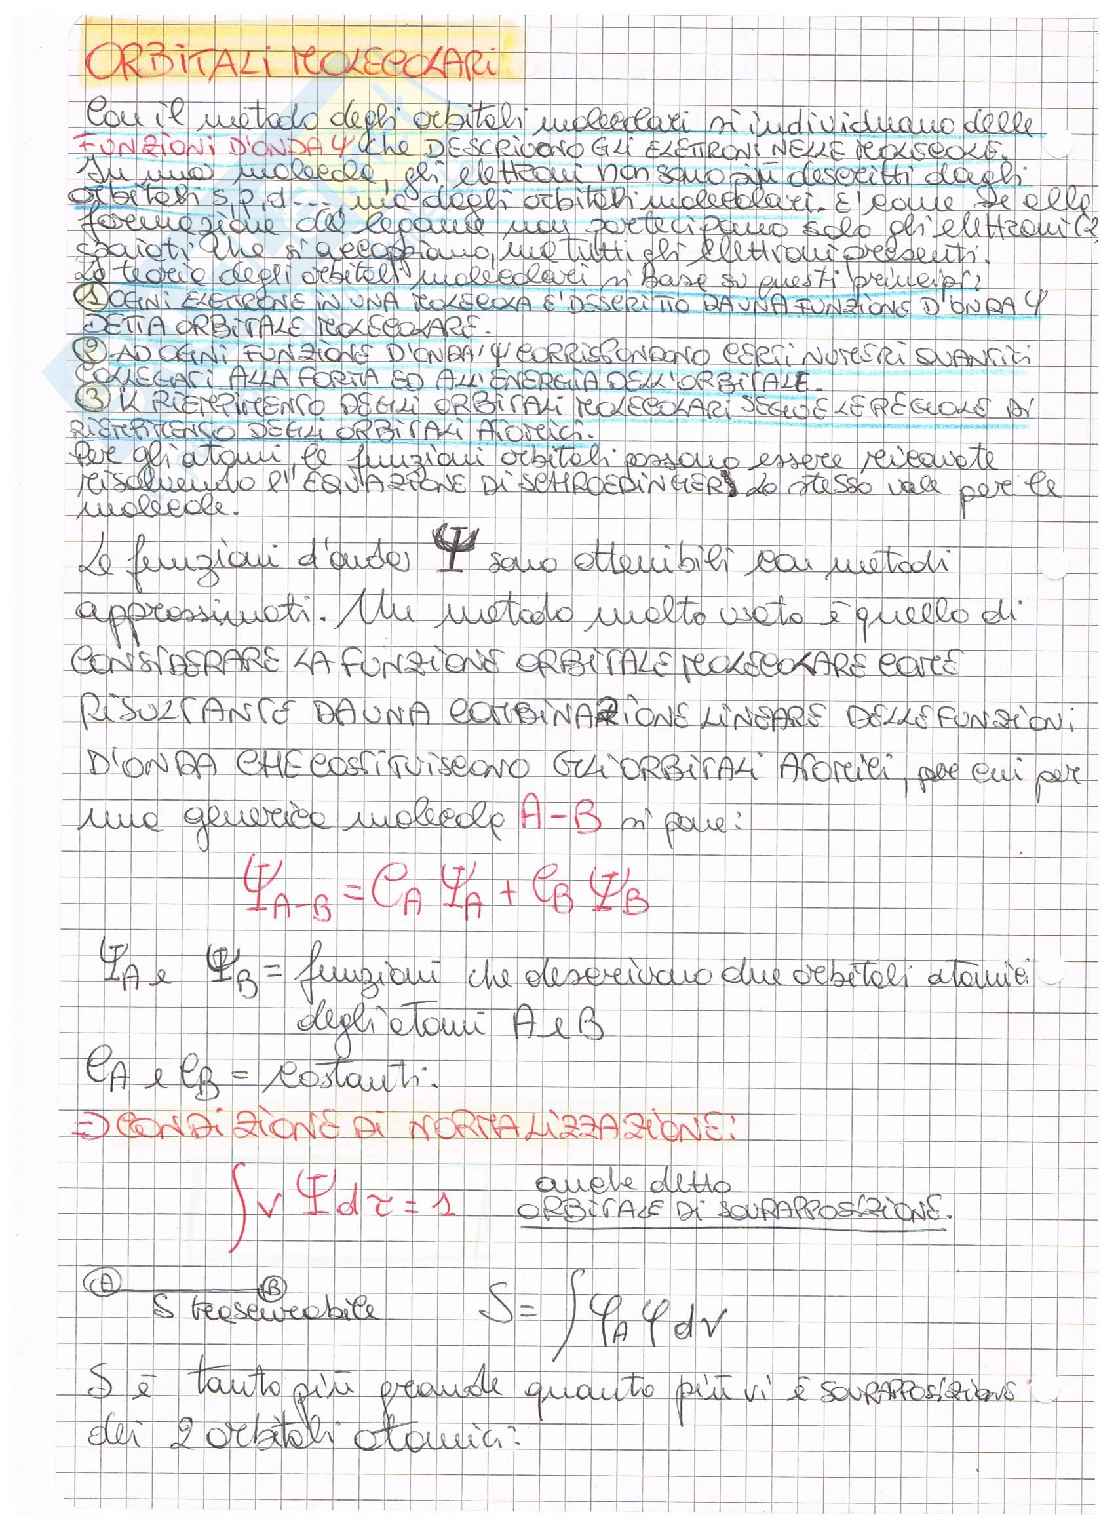 ORBITALI MOLECOLARI
Con il metodo degli orbitali molecolari si individuano delle
FUNZIONI D'ONDA Ψ che DESCRIVONO GLI ELETTRONI NELLE MOLECOLE.
In una molecola, gli elettroni non sono più descritti dagli
orbitali s, p, d ... ma dagli orbitali molecolari. E' come se alla
formazione del legame non partecipano solo gli elettroni
spaiati che si accoppiano, ma tutti gli elettroni presenti.
La teoria degli orbitali molecolari si basa su questi principi:
① OGNI ELETTRONE IN UNA MOLECOLA E' DESCRITTO DA UNA FUNZIONE D'ONDA Ψ
DETTA ORBITALE MOLECOLARE.
② AD OGNI FUNZIONE D'ONDA Ψ CORRISPONDONO CERTI NUMERI QUANTICI
COLLEGATI ALLA FORMA ED ALL'ENERGIA DELL'ORBITALE.
③ IL RIEMPIMENTO DEGLI ORBITALI MOLECOLARI SEGUE LE REGOLE DI
RIEMPIMENTO DEGLI ORBITALI ATOMICI.
Per gli atomi, le funzioni orbitali possono essere ricavate
risolvendo l'EQUAZIONE DI SCHROEDINGER. Lo stesso vale per le
molecole.
Le funzioni d'onda Ψ sono ottenibili con metodi
approssimati. Un metodo molto usato è quello di
CONSIDERARE LA FUNZIONE ORBITALE MOLECOLARE COME
RISULTANTE DA UNA COMBINAZIONE LINEARE DELLE FUNZIONI
D'ONDA CHE COSTITUISCONO GLI ORBITALI ATOMICI, per cui per
una generica molecola A-B si pone:
Ψ_A-B = C_A Ψ_A + C_B Ψ_B
Ψ_A e Ψ_B = funzioni che descrivono due orbitali atomici
degli atomi A e B
C_A e C_B = costanti.
⇒ CONDIZIONE DI NORMALIZZAZIONE:
∫ v Ψ dτ = 1 anche detto
ORBITALE DI SOVRAPPOSIZIONE.
A B
S trascurabile S = ∫ φ_A φ dv
S è tanto più grande quanto più vi è SOVRAPPOSIZIONE
dei 2 orbitali atomici: